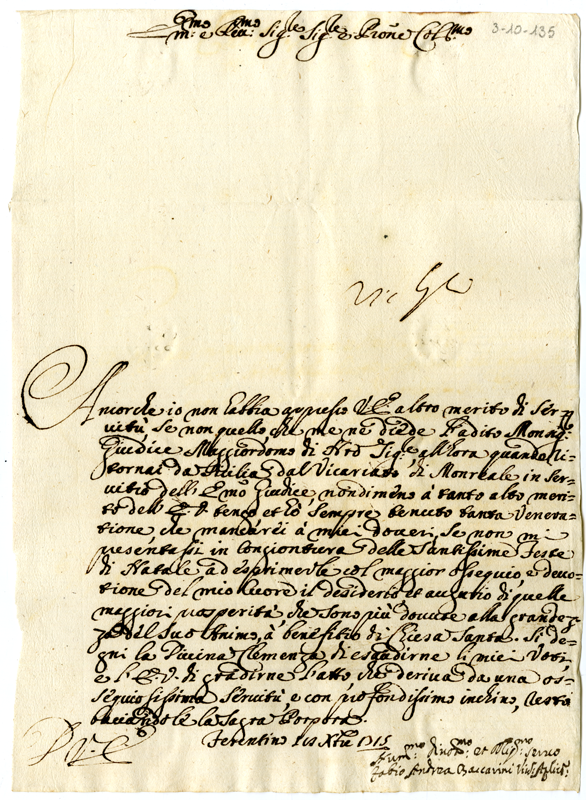 3-10-135
Em.mo e Rev.mo Sig.re Sig.re e Pron̄e Col.mo
Ancorche io non habbia appresso V.E. altro merito di Ser=
vitù, se non quello che me ne diede l'adito Monsig.r
Giudice Maggiordomo di N.ro Sig.re all'hora quando ri=
tornai da Sicilia dal Vicariato di Monreale in ser=
vitio dell'Em.mo Giudice nondimeno à tanto alto meri=
to dell'E.V. tengo et hò sempre tenuto tanta Venera=
tione che mancarei à miei doveri, se non mi
presentassi in congiontura delle Santissime feste
di Natale ad esprimerle col maggior ossequio, e devo=
tione del mio Cuore il desiderio et augurio di quelle
maggiori prosperità, che sono più dovute alla grandez=
za del Suo Animo, à benefitio di Chiesa Santa. Si de=
gni la Divina Clemenza di esaudirne li miei Voti,
e l'E.V. di gradirne l'atto che deriva da una os=
sequiosissima Servitù, e con profondissimo inchino, resto
baciandole la Sacra Porpora.
Ferentino X.bre 1715
D. V. E.
Hum.mo Divot.mo et Obl.mo Servo
Fabio Andrea Vaccarini Vic. Aplico